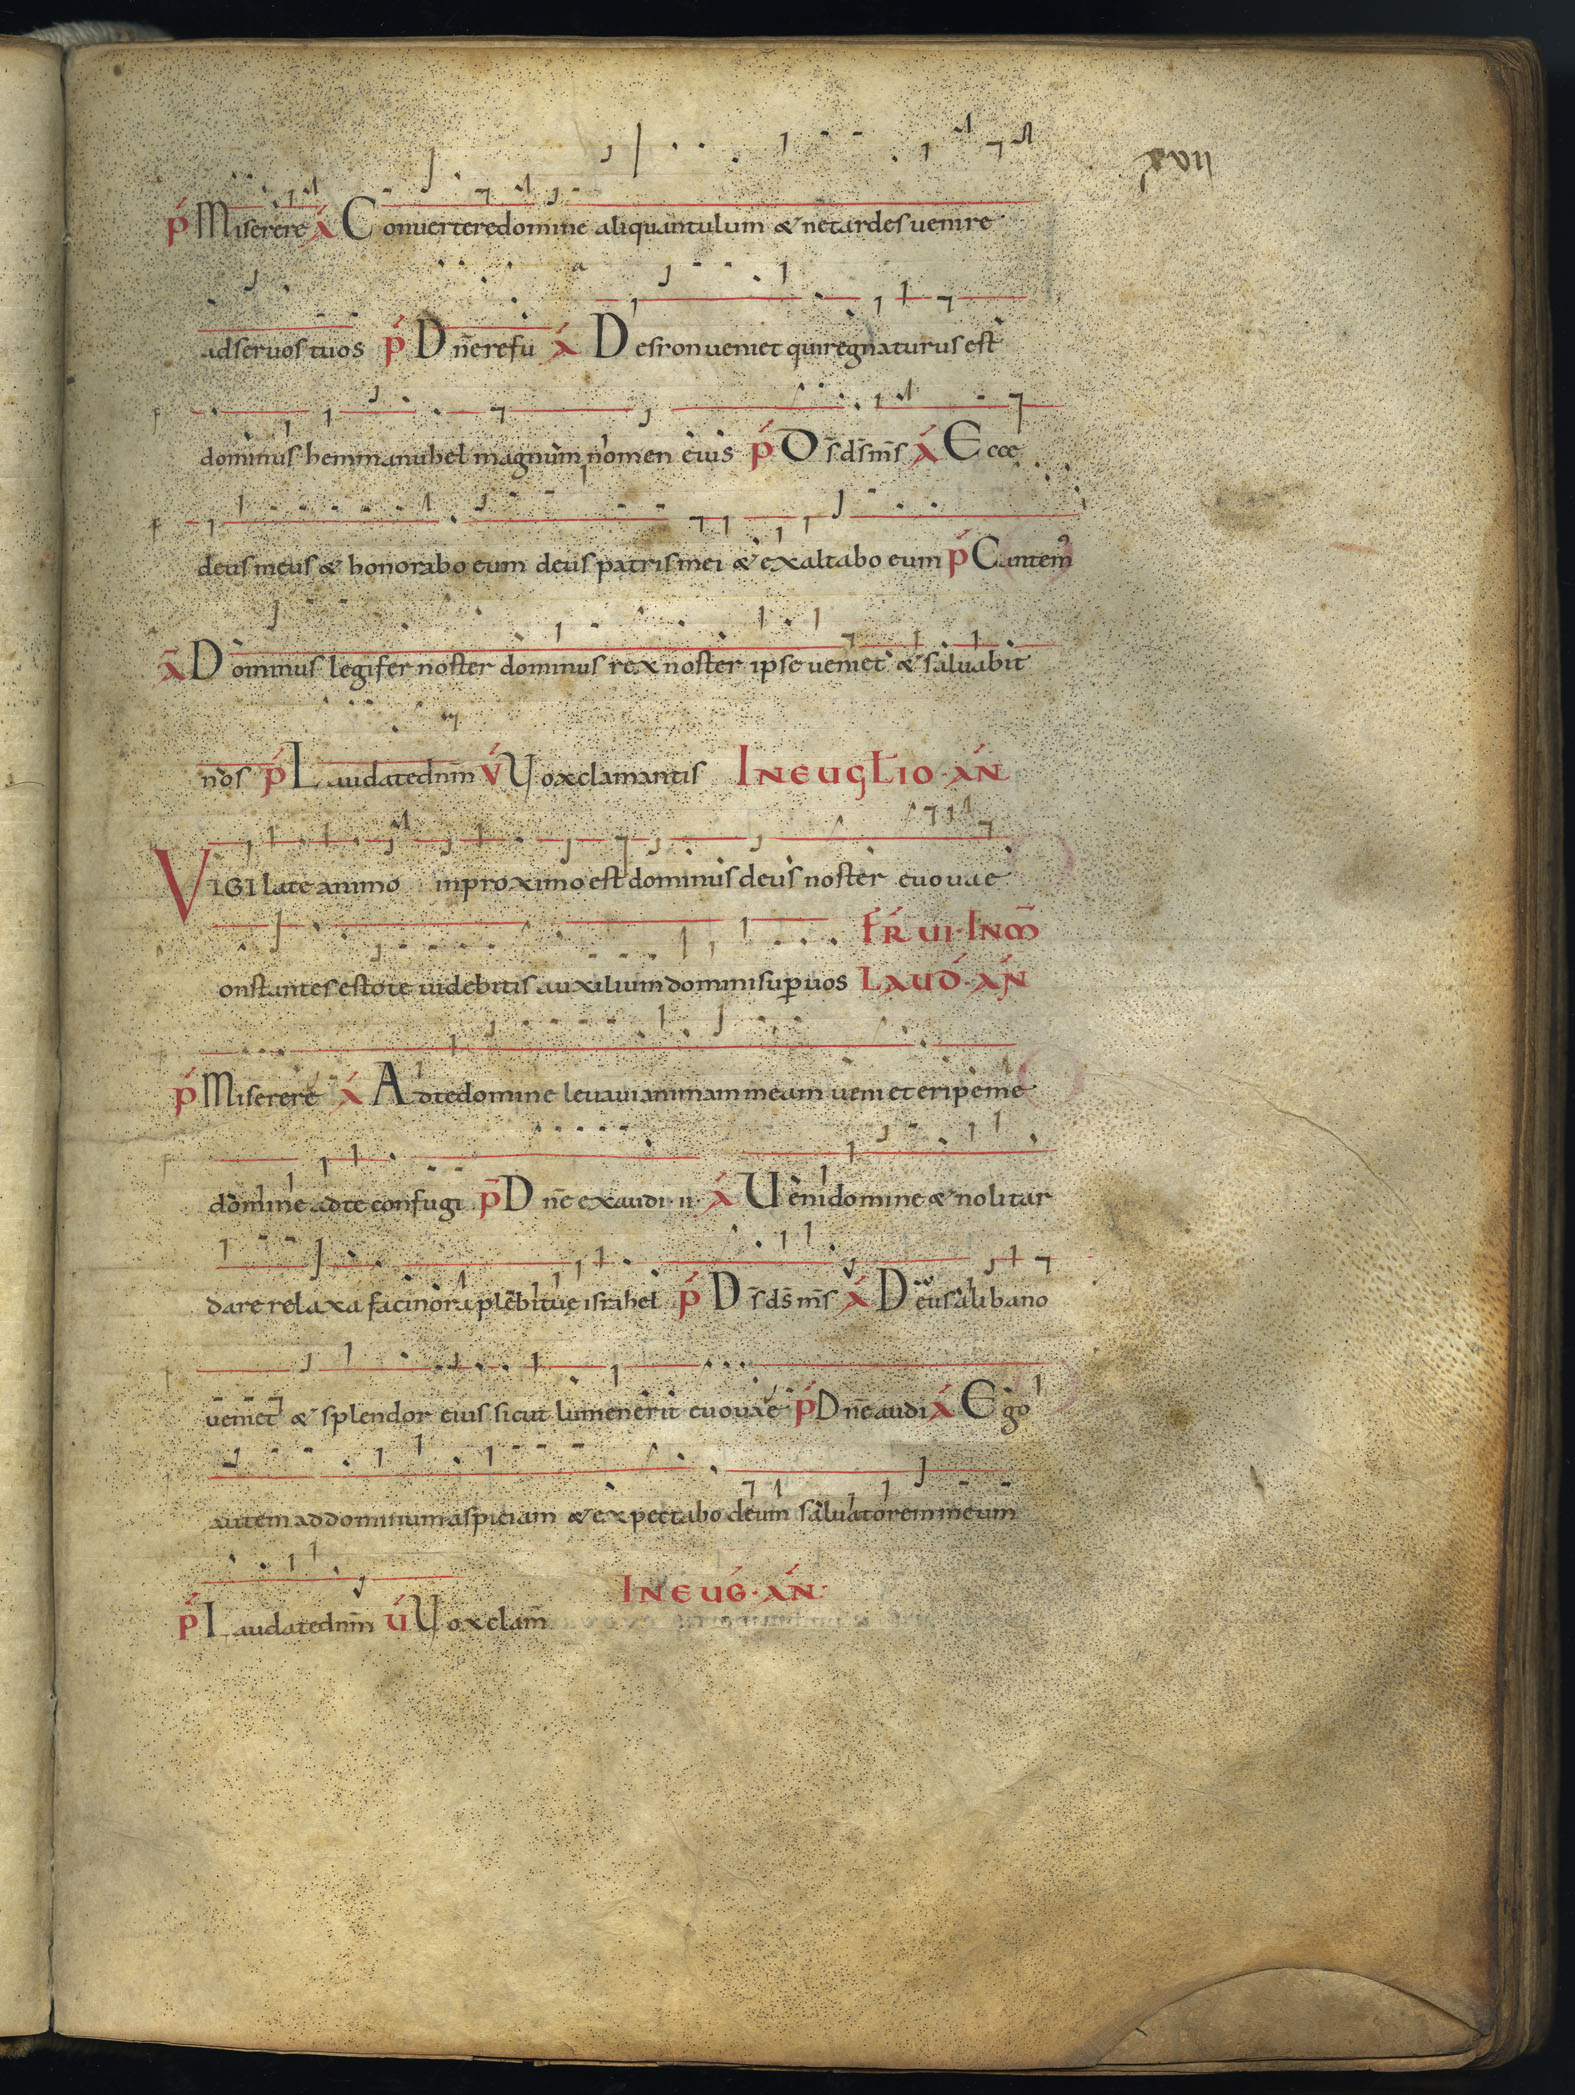 xvii
p Miserere a Conuerteredomine aliquantulum & netardes uenire
adseruos tuos p Dn̄erefu a Desronueniet quiregnaturus est
dominus hemmanuhel magnum nomen eius p Ds̄ds̄ms̄ a Ecce
deus meus & honorabo eum deus patris mei & exaltabo eum p Cantem᾽
a Dominus legifer noster dominus rex noster ipse ueniet & saluabit
nos p Laudatednm̄ v Uox clamantis INEUGLIO · AN
VIGIlate animo inproximo est dominus deus noster euouae
FR UI · IN M̄
onstantes estote uidebitis auxilium domini sup uos LAUD · AN
p Miserere a Adtedomine leuaui animam meam ueni et eripe me
domine adte confugi p Dn̄e exaudi · ii · a Ueni domine & noli tar
dare relaxa facinora plebi tue israhel p Ds̄ds̄ms̄ a Deus alibano
ueniet & splendor eius sicut lumen erit euouae p Dn̄e audi a Ego
autem addominum aspiciam & expectabo deum saluatorem meum
INEUG · AN ·
p Laudatednm̄ u Uox clam̄